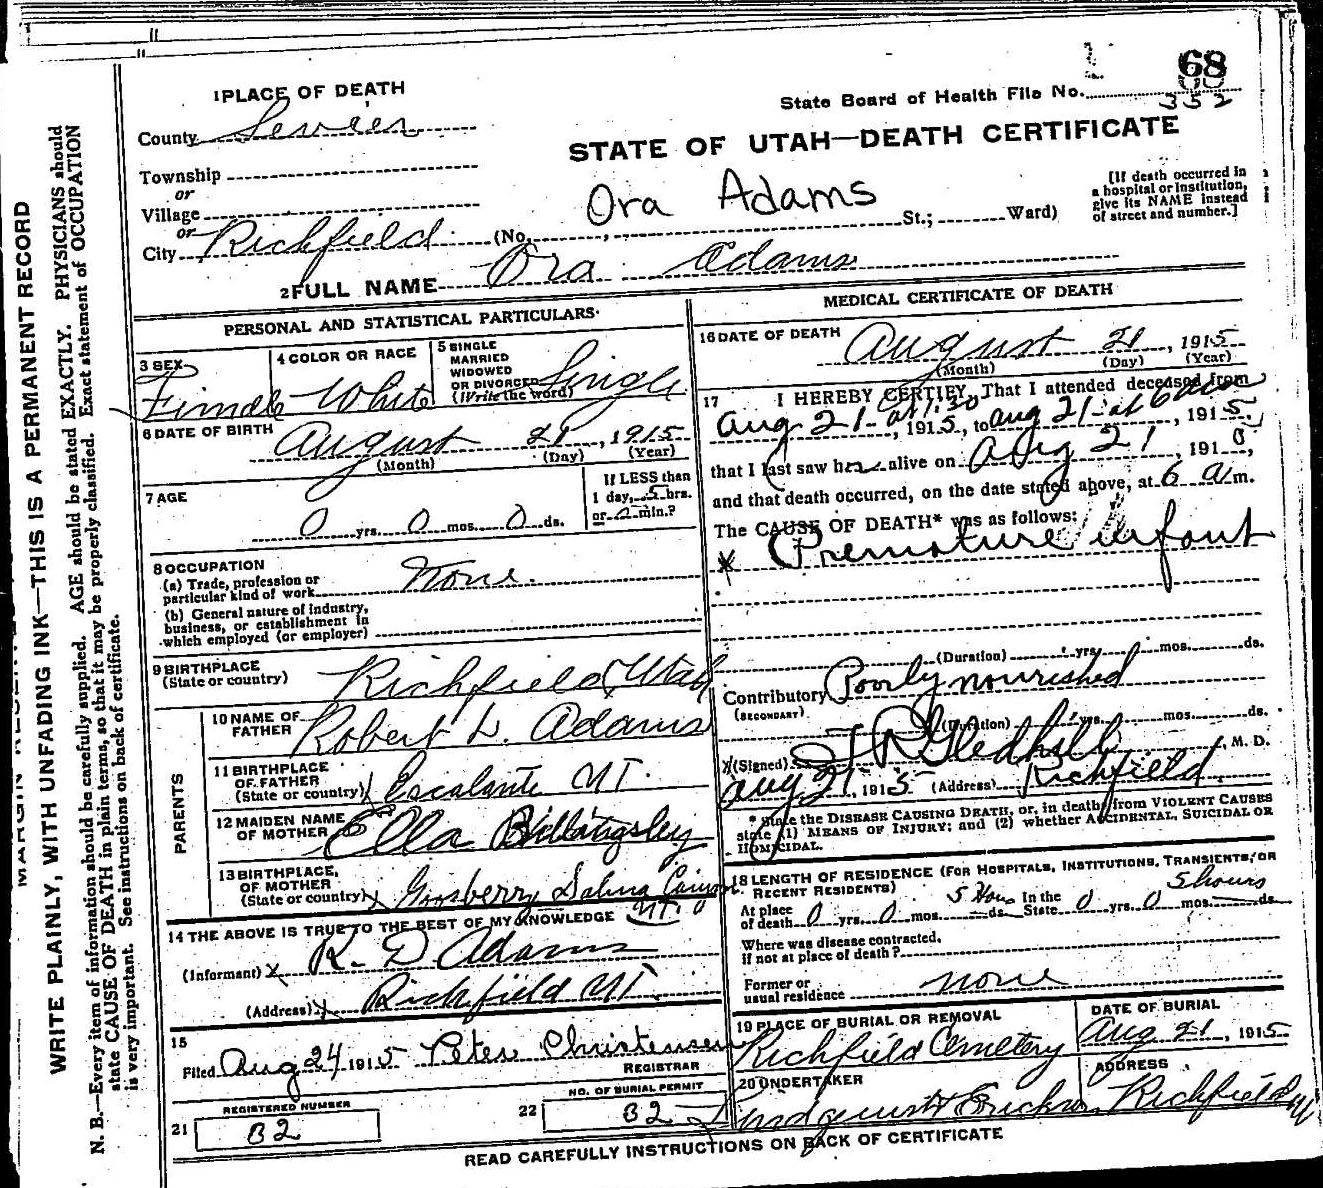 68
State Board of Health File No. 352
1 PLACE OF DEATH
County Sevier
STATE OF UTAH—DEATH CERTIFICATE
Township
or
Village
or
City Richfield (No. , St.; Ward)
Ora Adams
[If death occurred in a hospital or institution, give its NAME instead of street and number.]
2 FULL NAME Ora Adams
PERSONAL AND STATISTICAL PARTICULARS
3 SEX Female
4 COLOR OR RACE White
5 SINGLE MARRIED WIDOWED OR DIVORCED (Write the word) Single
6 DATE OF BIRTH August 21, 1915
(Month) (Day) (Year)
7 AGE
0 yrs. 0 mos. 0 ds.
If LESS than 1 day, 5 hrs. or 0 min.?
8 OCCUPATION
(a) Trade, profession or particular kind of work None.
(b) General nature of industry, business, or establishment in which employed (or employer)
9 BIRTHPLACE (State or country) Richfield, Utah
PARENTS
10 NAME OF FATHER Robert D. Adams
11 BIRTHPLACE OF FATHER (State or country) Escalante UT.
12 MAIDEN NAME OF MOTHER Ella Billingsley
13 BIRTHPLACE OF MOTHER (State or country) Goosberry Salina Canyon UT.
14 THE ABOVE IS TRUE TO THE BEST OF MY KNOWLEDGE
(Informant) R. D Adams
(Address) Richfield UT.
15
Filed Aug 24 1915 Peter Christensen
REGISTRAR
21 REGISTERED NUMBER 82
22 NO. OF BURIAL PERMIT 82
MEDICAL CERTIFICATE OF DEATH
16 DATE OF DEATH August 21, 1915
(Month) (Day) (Year)
17 I HEREBY CERTIFY, That I attended deceased from
Aug 21 - at 1:30, 1915, to Aug 21 - at 6 am, 1915,
that I last saw her alive on Aug 21, 191
and that death occurred, on the date stated above, at 6 a m.
The CAUSE OF DEATH* was as follows:
Premature infant
(Duration) yrs. mos. ds.
Contributory (SECONDARY) Poorly nourished
(Duration) yrs. mos. ds.
(Signed) Gledhill, M. D.
Aug 21, 1915 (Address) Richfield
* State the DISEASE CAUSING DEATH, or, in deaths from VIOLENT CAUSES state (1) MEANS OF INJURY; and (2) whether ACCIDENTAL, SUICIDAL OR HOMICIDAL.
18 LENGTH OF RESIDENCE (FOR HOSPITALS, INSTITUTIONS, TRANSIENTS, OR RECENT RESIDENTS)
At place of death 0 yrs. 0 mos. 5 Hours ds. In the State 0 yrs. 0 mos. 5 hours ds.
Where was disease contracted, if not at place of death?
Former or usual residence none
19 PLACE OF BURIAL OR REMOVAL Richfield Cemetery
DATE OF BURIAL Aug 21, 1915
20 UNDERTAKER
ADDRESS Richfield
READ CAREFULLY INSTRUCTIONS ON BACK OF CERTIFICATE
WRITE PLAINLY, WITH UNFADING INK—THIS IS A PERMANENT RECORD
N. B.—Every item of information should be carefully supplied. AGE should be stated EXACTLY. PHYSICIANS should
state CAUSE OF DEATH in plain terms, so that it may be properly classified. Exact statement of OCCUPATION
is very important. See instructions on back of certificate.